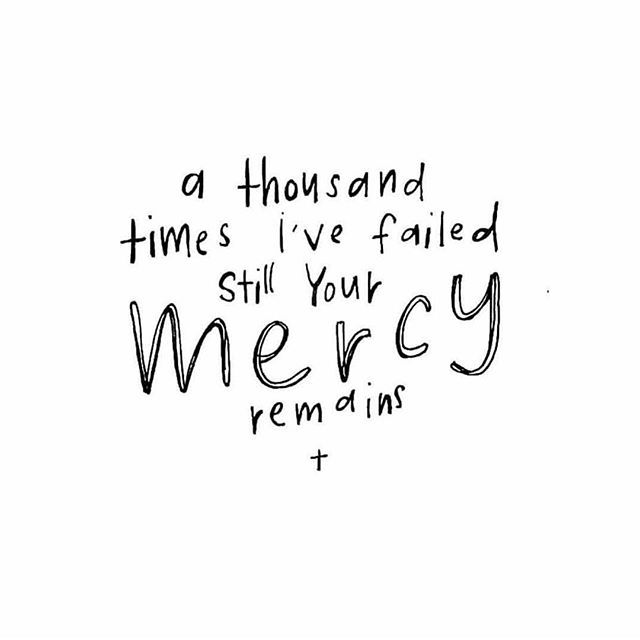 a thousand
times I've failed
Still Your
mercy
remains